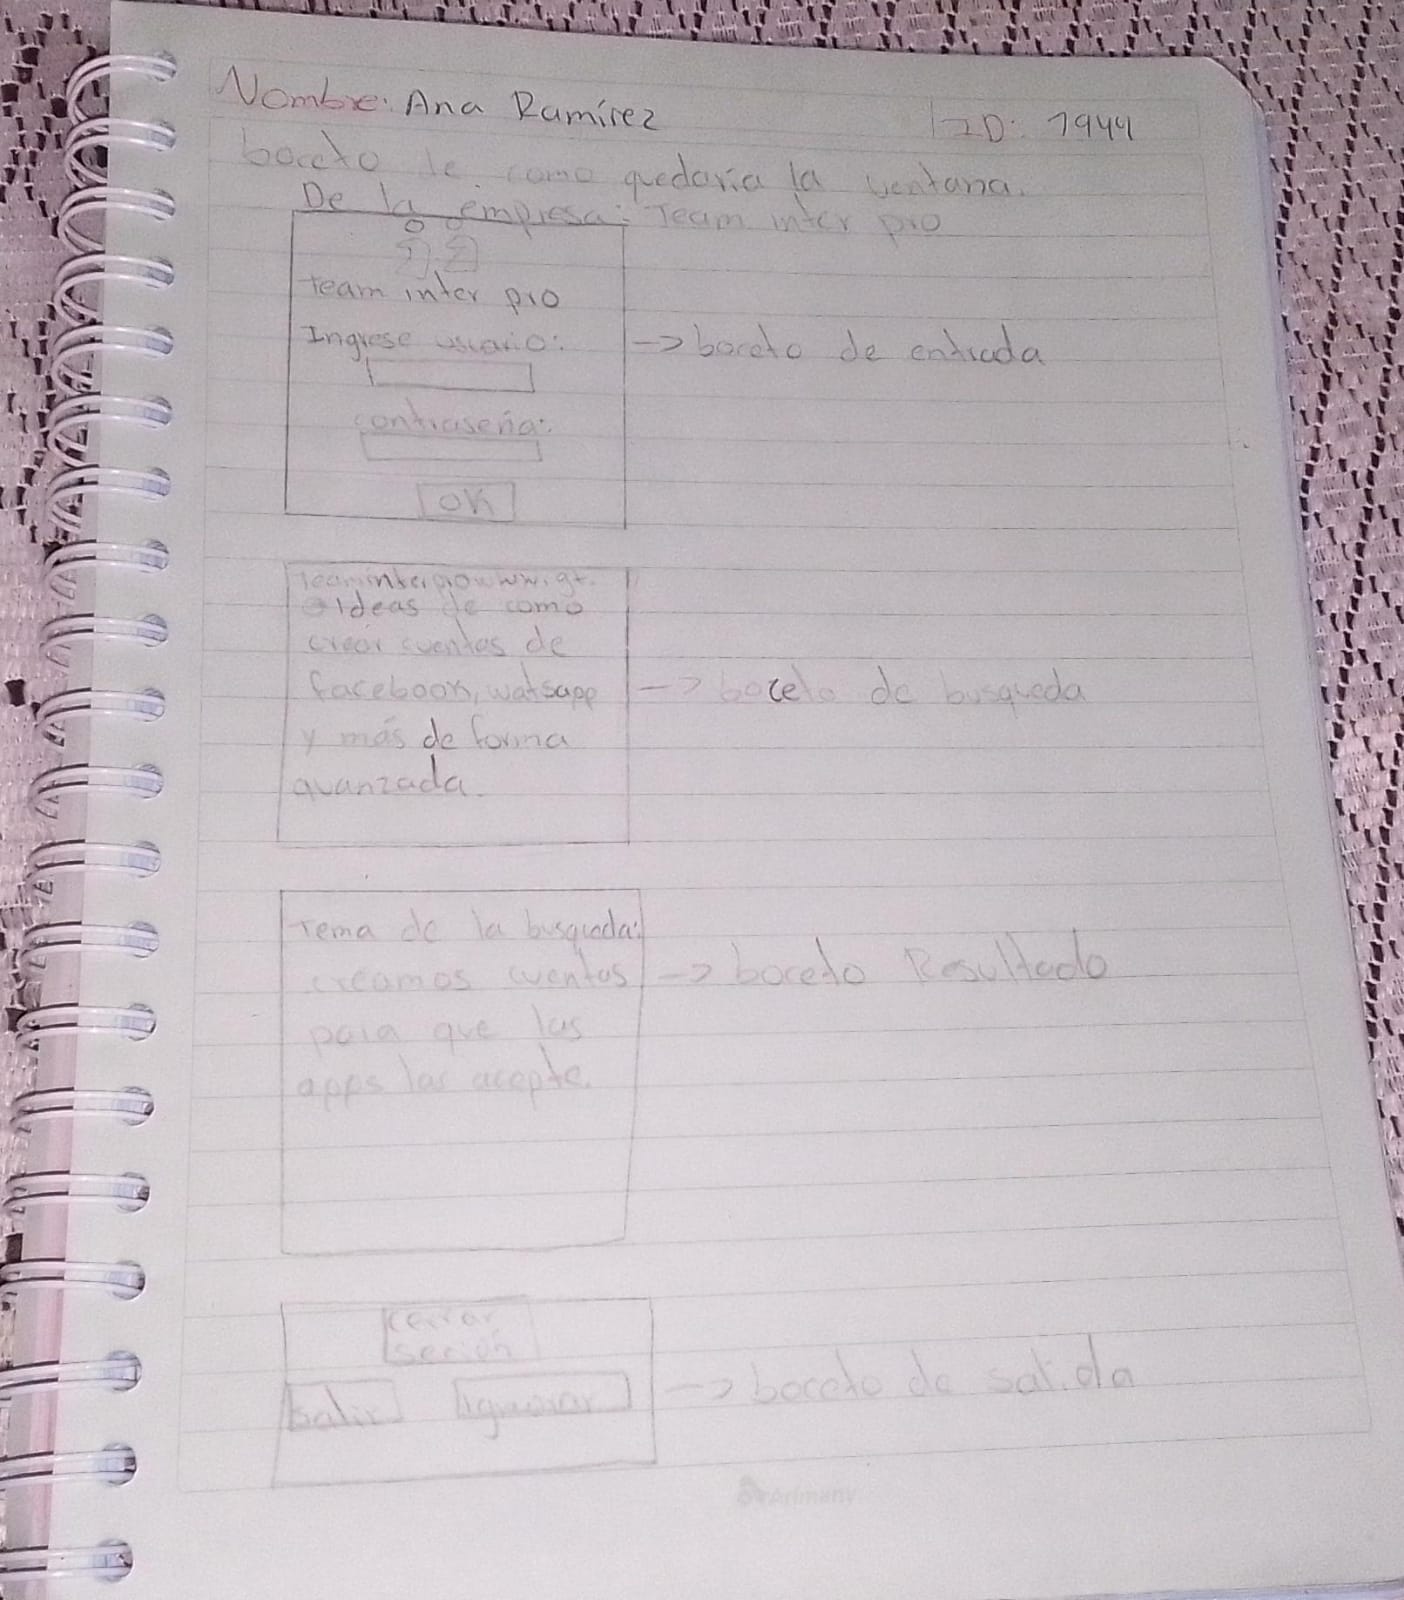 Nombre: Ana Ramírez ID: 1944
boceto de como quedaría la ventana.
De la empresa: Team inter pro
Team inter pro
Ingrese usuario:
→ boceto de entrada
contraseña:
OK
Teaminterprowww.gt.
Ideas de como
crear cuentas de
facebook, watsapp
→ boceto de busqueda
y más de forma
avanzada.
Tema de la busqueda:
creamos cuentas
→ boceto Resultado
para que las
apps las acepte.
cerrar
seción
Salir Ignorar
→ boceto de salida
Arimany